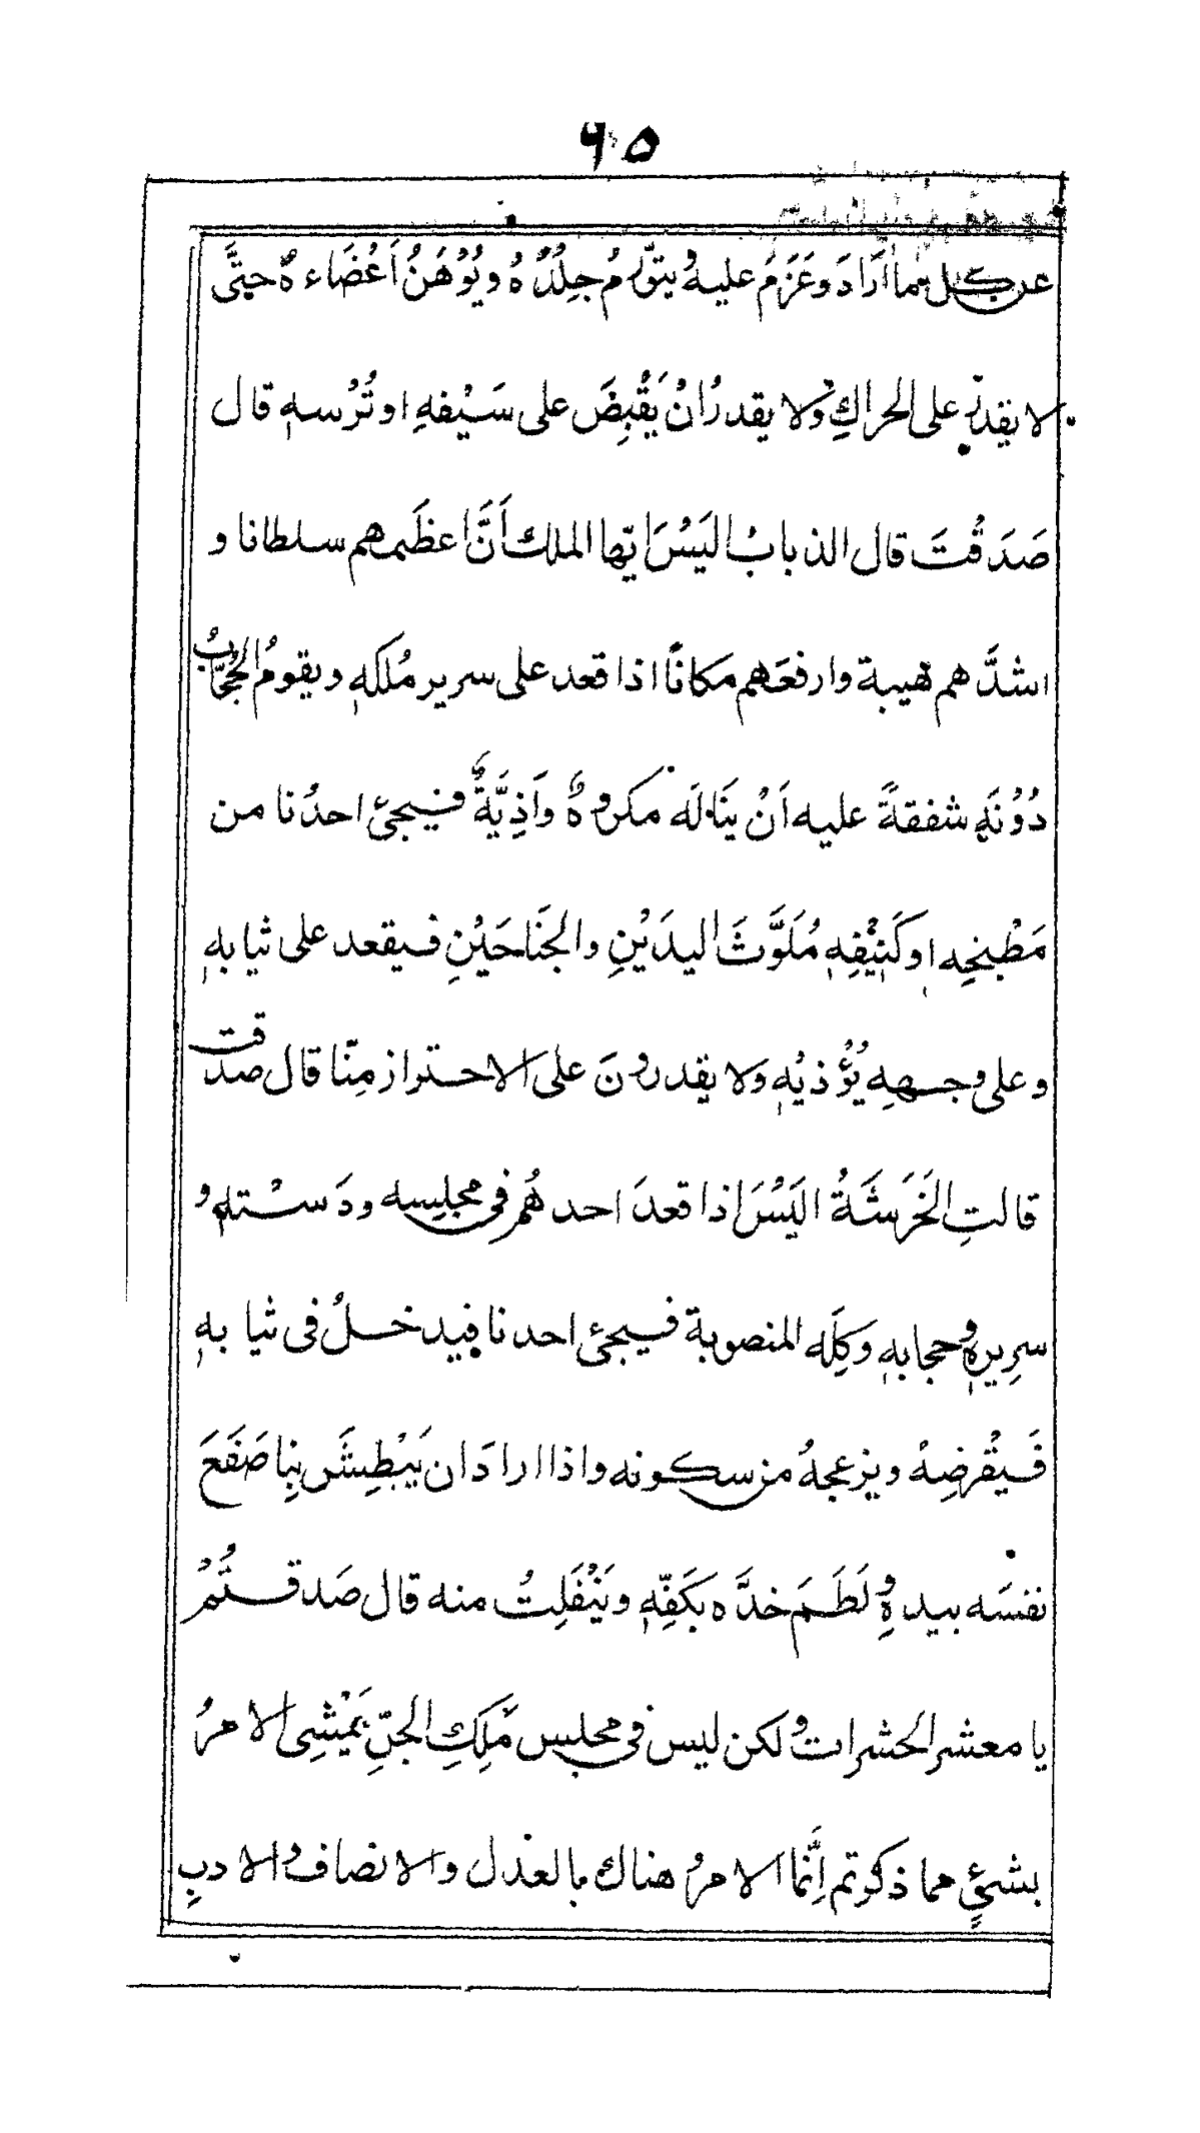 ٦٥
عن كل مما اَرَادَ وعَزَمَ عليهُ يتوّرمُ جلدُهُ ويُوْهَنُ اَعْضَاءهٌ حتىَّ
لا يقدر على الحراكِ ولا يقدرُانْ يَقْبِضَ على سَيْفهِ اوتُرْسهٖ قال
صَدَقْتَ قال الذبابُ اليَسْرَ ايّها الملك اَنَّ اعظَمهم سلطانا و
اشدَّهم هيبة وارفعَهم مكانًا اذا قعد على سرير مُلكهٖ ويقومُ الحُجَّابُ
دُوْنَهٖ شفقةً عليه اَنْ ينَالَه مكروهٌ واَذِيَّةٌ فيجئ احدُنا من
مَطْبخِهٖ اوكَنِيْفِهٖ مُلَوَّثَ اليدَيْنِ والجَنَاحَيْنِ فيقعد على ثيابهٖ
وعلى وجههِ يُؤْذيْهٖ ولا يقدرونَ على الاحتراز مِنّا قال صدقت
قالتِ الخَرَشَةُ اليَسْرَ اذا قعدَ احدهُم فى مجلسِه ودَسْتهٖ و
سرِيرهٖ وحجابهٖ وكِلَّه المنصوبة فيجئ احدنا فيدخلُ فى ثيابهٖ
فَيقْرضِهُ ويزعجهُ من سكونه واذا ارادَان يَبْطِشَ بِنا صَفَعَ
نفسَه بيدهِٖ ولَطَمَ خدَّه بكَفِّهٖ ويَنْفَلِتُ منه قال صَدقتُمْ
يا معشر الحشرات ولكن ليس فى مجلس مَلِكِ الجنِّ يَمْشِى الامرُ
بشئٍ مما ذكرتم اِنَّما الامرُ هناك بالعدل والانصاف والادبِ